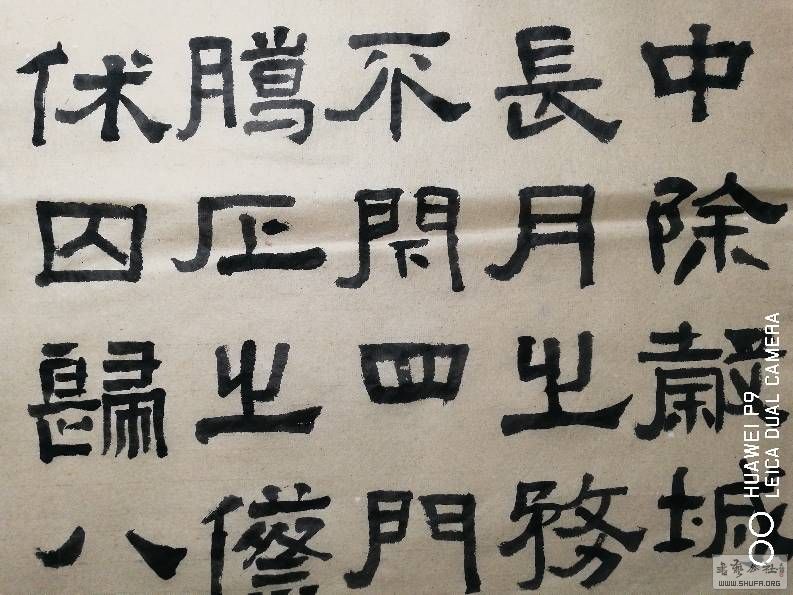 中除穀城
長月之務
不閉四門
騰正之傺
休囚歸八
HUAWEI P9
LEICA DUAL CAMERA
WWW.SHUFA.ORG